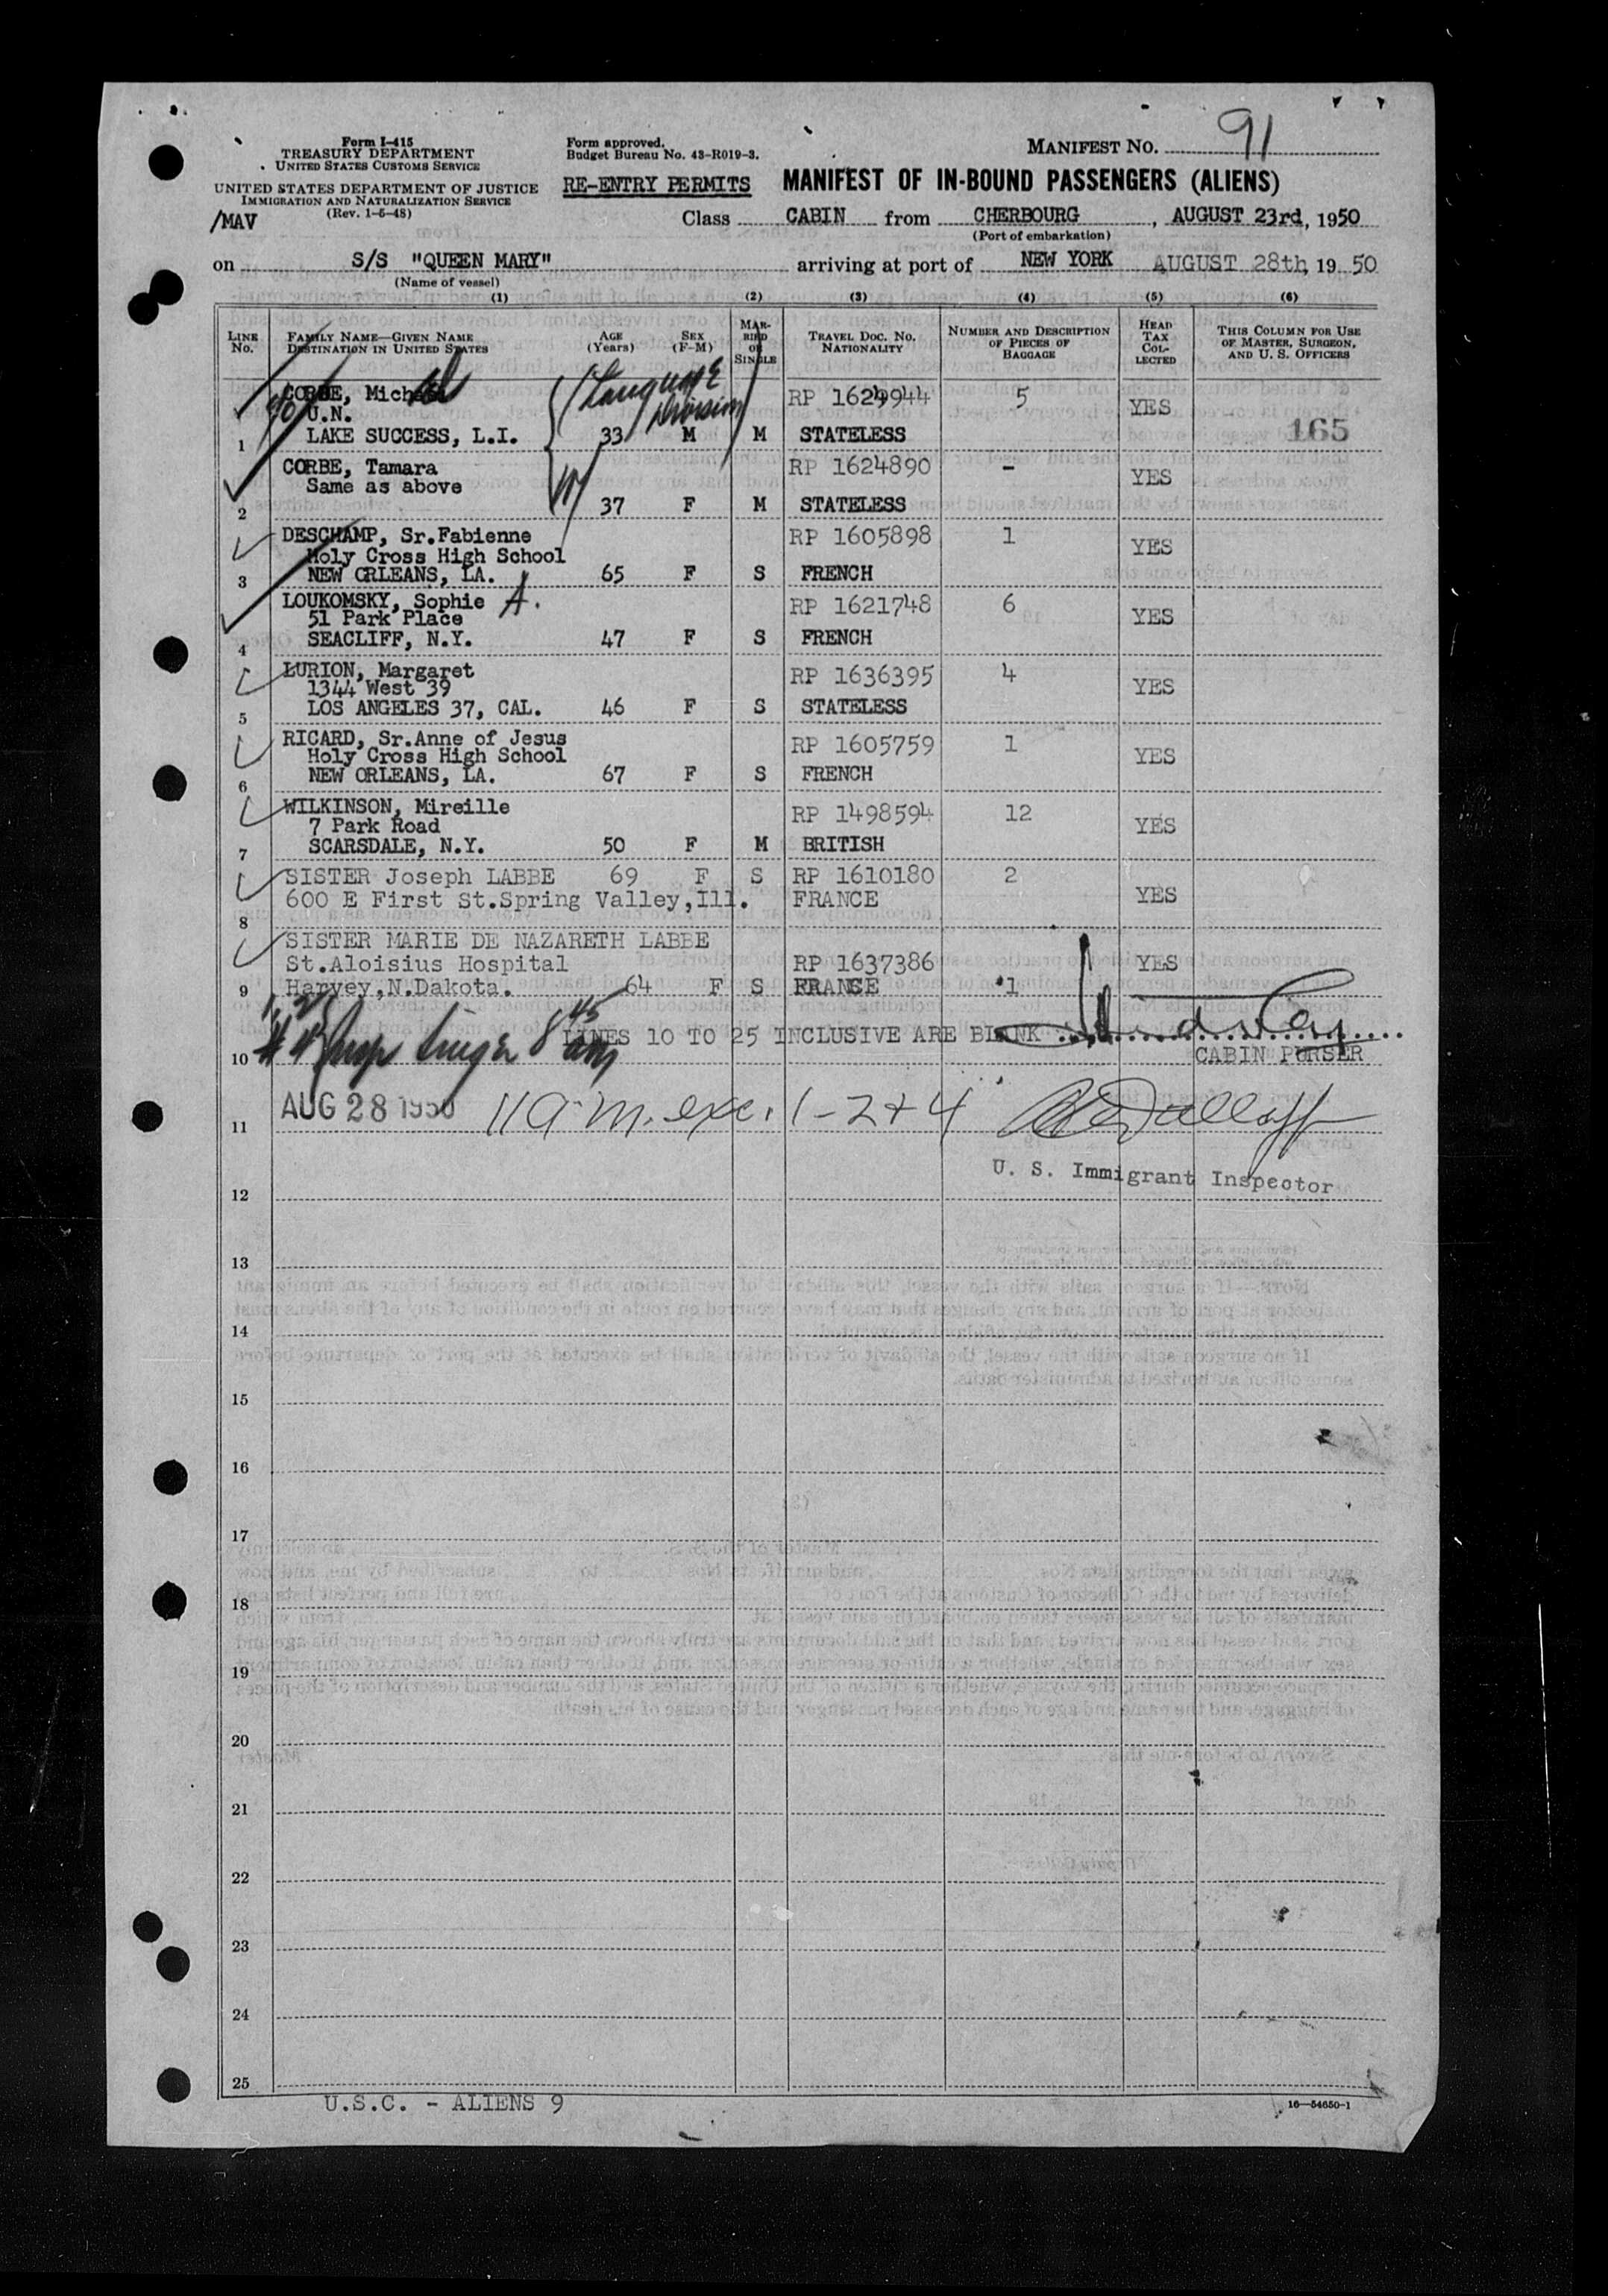 Form I-415
TREASURY DEPARTMENT
UNITED STATES CUSTOMS SERVICE
UNITED STATES DEPARTMENT OF JUSTICE
IMMIGRATION AND NATURALIZATION SERVICE
(Rev. 1-5-48)
/MAV
Form approved.
Budget Bureau No. 43-R019-3.
RE-ENTRY PERMITS
MANIFEST NO. 91
MANIFEST OF IN-BOUND PASSENGERS (ALIENS)
Class CABIN from CHERBOURG, AUGUST 23rd, 1950
(Port of embarkation)
on S/S "QUEEN MARY" arriving at port of NEW YORK AUGUST 28th, 1950
(Name of vessel)
(1) (2) (3) (4) (5) (6)
LINE No. FAMILY NAME—GIVEN NAME DESTINATION IN UNITED STATES AGE (Years) SEX (F-M) MARRIED OR SINGLE TRAVEL DOC. No. NATIONALITY NUMBER AND DESCRIPTION OF PIECES OF BAGGAGE HEAD TAX COLLECTED THIS COLUMN FOR USE OF MASTER, SURGEON, AND U. S. OFFICERS
CORBE, Michel (Language RP 1624944 5 YES
U.N. Division)
1 LAKE SUCCESS, L.I. 33 M M STATELESS 165
CORBE, Tamara RP 1624890 - YES
Same as above
2 37 F M STATELESS
DESCHAMP, Sr.Fabienne RP 1605898 1 YES
Holy Cross High School
3 NEW ORLEANS, LA. 65 F S FRENCH
LOUKOMSKY, Sophie A. RP 1621748 6 YES
51 Park Place
4 SEACLIFF, N.Y. 47 F S FRENCH
LURION, Margaret RP 1636395 4 YES
1344 West 39
5 LOS ANGELES 37, CAL. 46 F S STATELESS
RICARD, Sr.Anne of Jesus RP 1605759 1 YES
Holy Cross High School
6 NEW ORLEANS, LA. 67 F S FRENCH
WILKINSON, Mireille RP 1498594 12 YES
7 Park Road
7 SCARSDALE, N.Y. 50 F M BRITISH
SISTER Joseph LABBE 69 F S RP 1610180 2 YES
600 E First St.Spring Valley,Ill. FRANCE
8
SISTER MARIE DE NAZARETH LABBE
St.Aloisius Hospital RP 1637386 YES
9 Harvey,N.Dakota. 64 F S FRANCE 1
10 LINES 10 TO 25 INCLUSIVE ARE BLANK
CABIN PURSER
11 AUG 28 1950 11 a.m. exc. 1-2+4
U. S. Immigrant Inspector
12
13
14
15
16
17
18
19
20
21
22
23
24
25
U.S.C. - ALIENS 9
16—54650-1